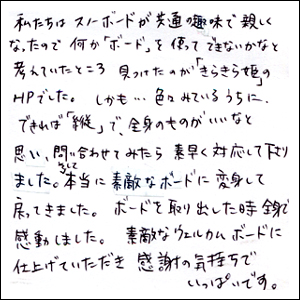 私たちは スノーボードが共通の趣味で親しく
なったので 何か「ボード」を使って できないかなと
考えていたところ 見つけたのが「きらきら姫」の
HPでした。 しかも… 色々みているうちに、
できれば「縦」で、全身のものがいいなと
思い、問い合わせてみたら 素早く対応して下さり
ました。そして本当に素敵なボードに変身して
戻ってきました。 ボードを取り出した時全員で
感動しました。 素敵なウェルカムボードに
仕上げていただき 感謝の気持ちで
いっぱいです。